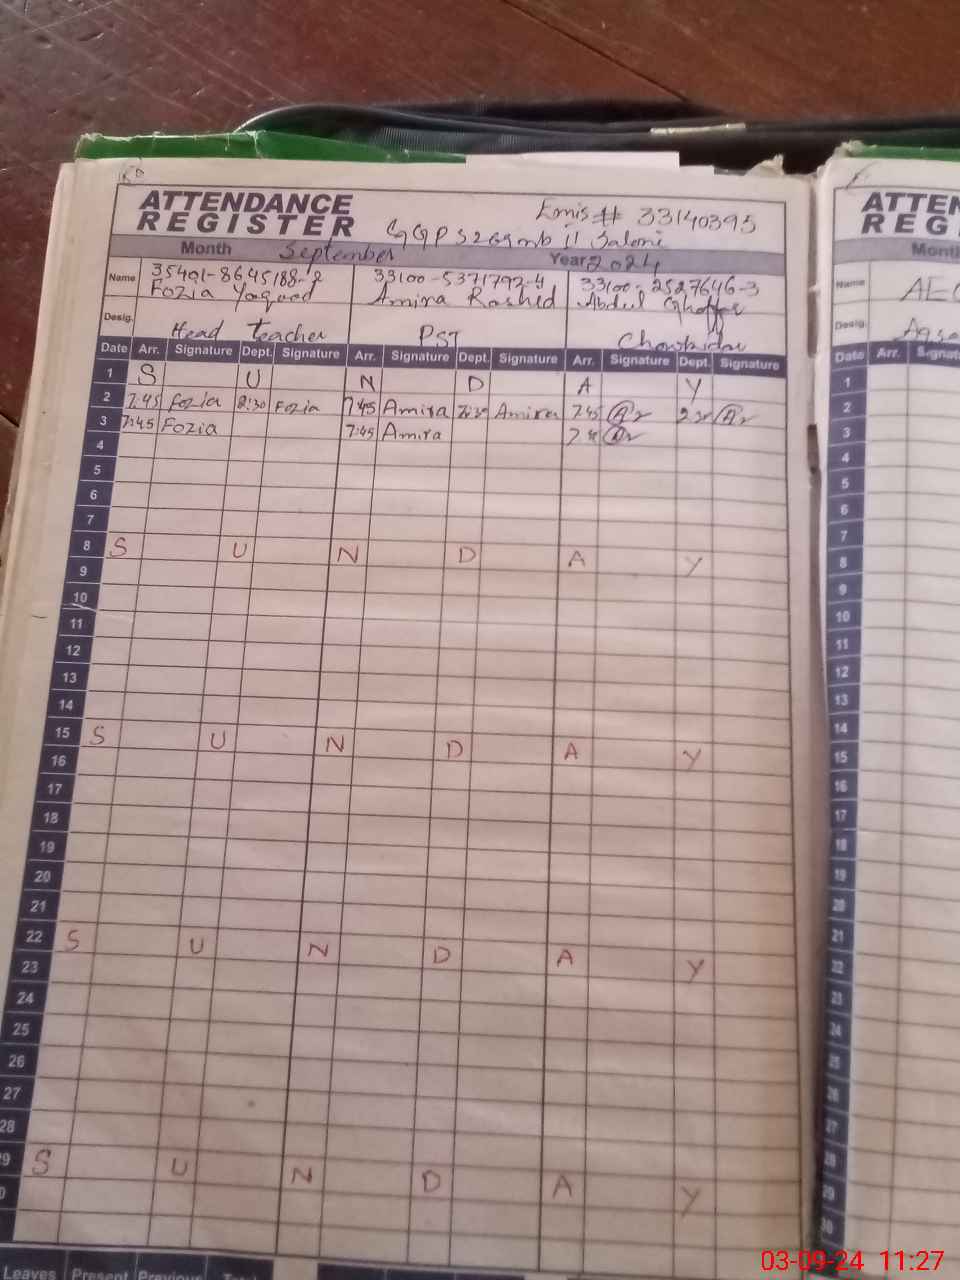 ATTENDANCE
REGISTER
Emis # 33140395
Month September Year 2024
Name 35401-8645188-2 33100-5371792-4 33100-2527646-3
Fozia Yaqood Amira Rashed Abdul Ghaffar
Desig. Head Teacher PST Chowkidar
Date Arr. Signature Dept. Signature Arr. Signature Dept. Signature Arr. Signature Dept. Signature
1 S U N D A Y
2 7:45 Fozia 2:30 Fozia 7:45 Amira Amira 7:45
3 7:45 Fozia 7:45 Amira
4
5
6
7
8 S U N D A Y
9
10
11
12
13
14
15 S U N D A Y
16
17
18
19
20
21
22 S U N D A Y
23
24
25
26
27
28
9 S U N D A Y
0
Leaves Present Previous Total
ATTEN
REG
Month
Name AEO
Desig.
Date Arr. Signatu
1
2
3
4
5
6
7
8
9
10
11
12
13
14
15
16
17
18
19
20
21
22
23
24
25
26
27
28
29
30
03-09-24 11:27